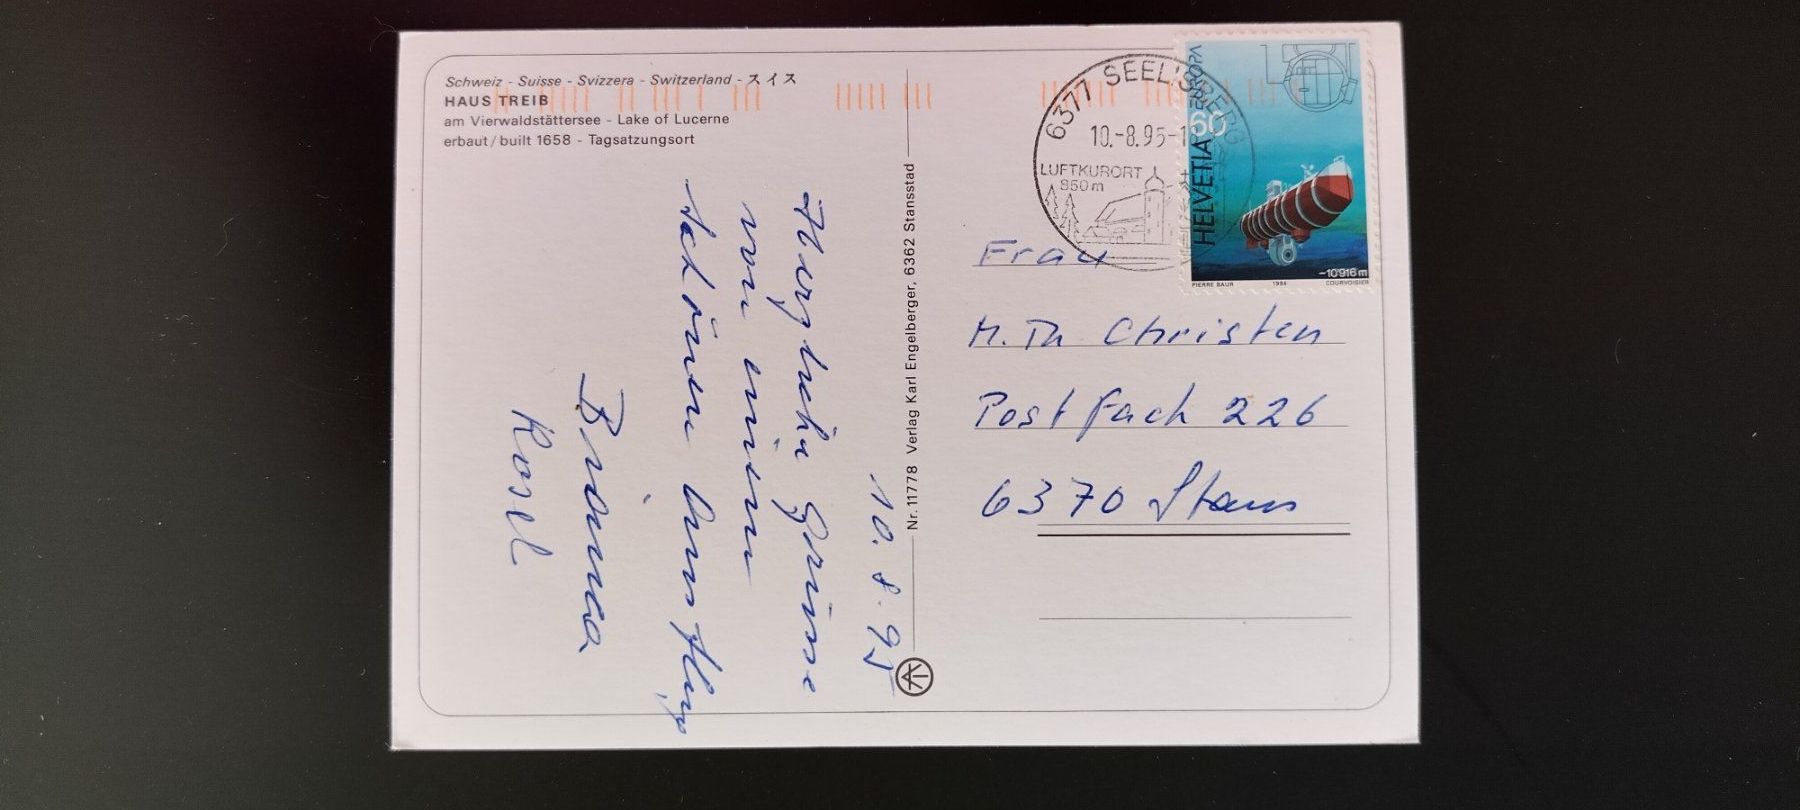 Schweiz - Suisse - Svizzera - Switzerland - スイス
HAUS TREIB
am Vierwaldstättersee - Lake of Lucerne
erbaut / built 1658 - Tagsatzungsort
10. 8. 95
Herzliche Grüsse
von einem
schönen Ausflug
Rosel
Nr. 11778 Verlag Karl Engelberger, 6362 Stansstad
6377 SEELISBERG
10.-8.95-1
LUFTKURORT
850 m
EUROPA
60
HELVETIA
-10'916 m
PIERRE BAUR 1994 COURVOISIER
Frau
M. Th Christen
Postfach 226
6370 Stans